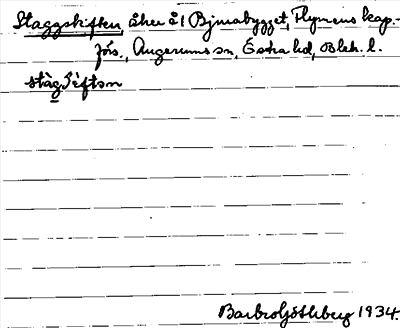 Staggskiften, åker å 1 Bjurabygget, Flymens kap.-
förs., Augerums sn, Östra hd, Blek. l.
Barbro Götlberg 1934.